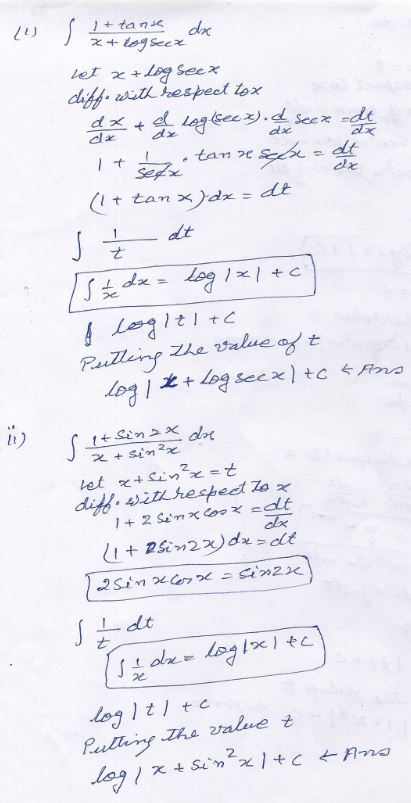 (i) ∫ (1 + tan x)/(x + log sec x) dx
Let x + log sec x
diff. with respect to x
dx/dx + d/dx log(sec x) · d/dx sec x = dt/dx
1 + 1/sec x · tan x sec x = dt/dx
(1 + tan x) dx = dt
∫ 1/t dt
∫ 1/x dx = log |x| + c
log |t| + c
Putting the value of t
log | x + log sec x | + c ← Ans
ii) ∫ (1 + sin 2x)/(x + sin²x) dx
Let x + sin²x = t
diff. with respect to x
1 + 2 sin x cos x = dt/dx
(1 + sin 2x) dx = dt
2 sin x cos x = sin 2x
∫ 1/t dt
∫ 1/x dx = log |x| + c
log |t| + c
Putting the value t
log | x + sin²x | + c ← Ans